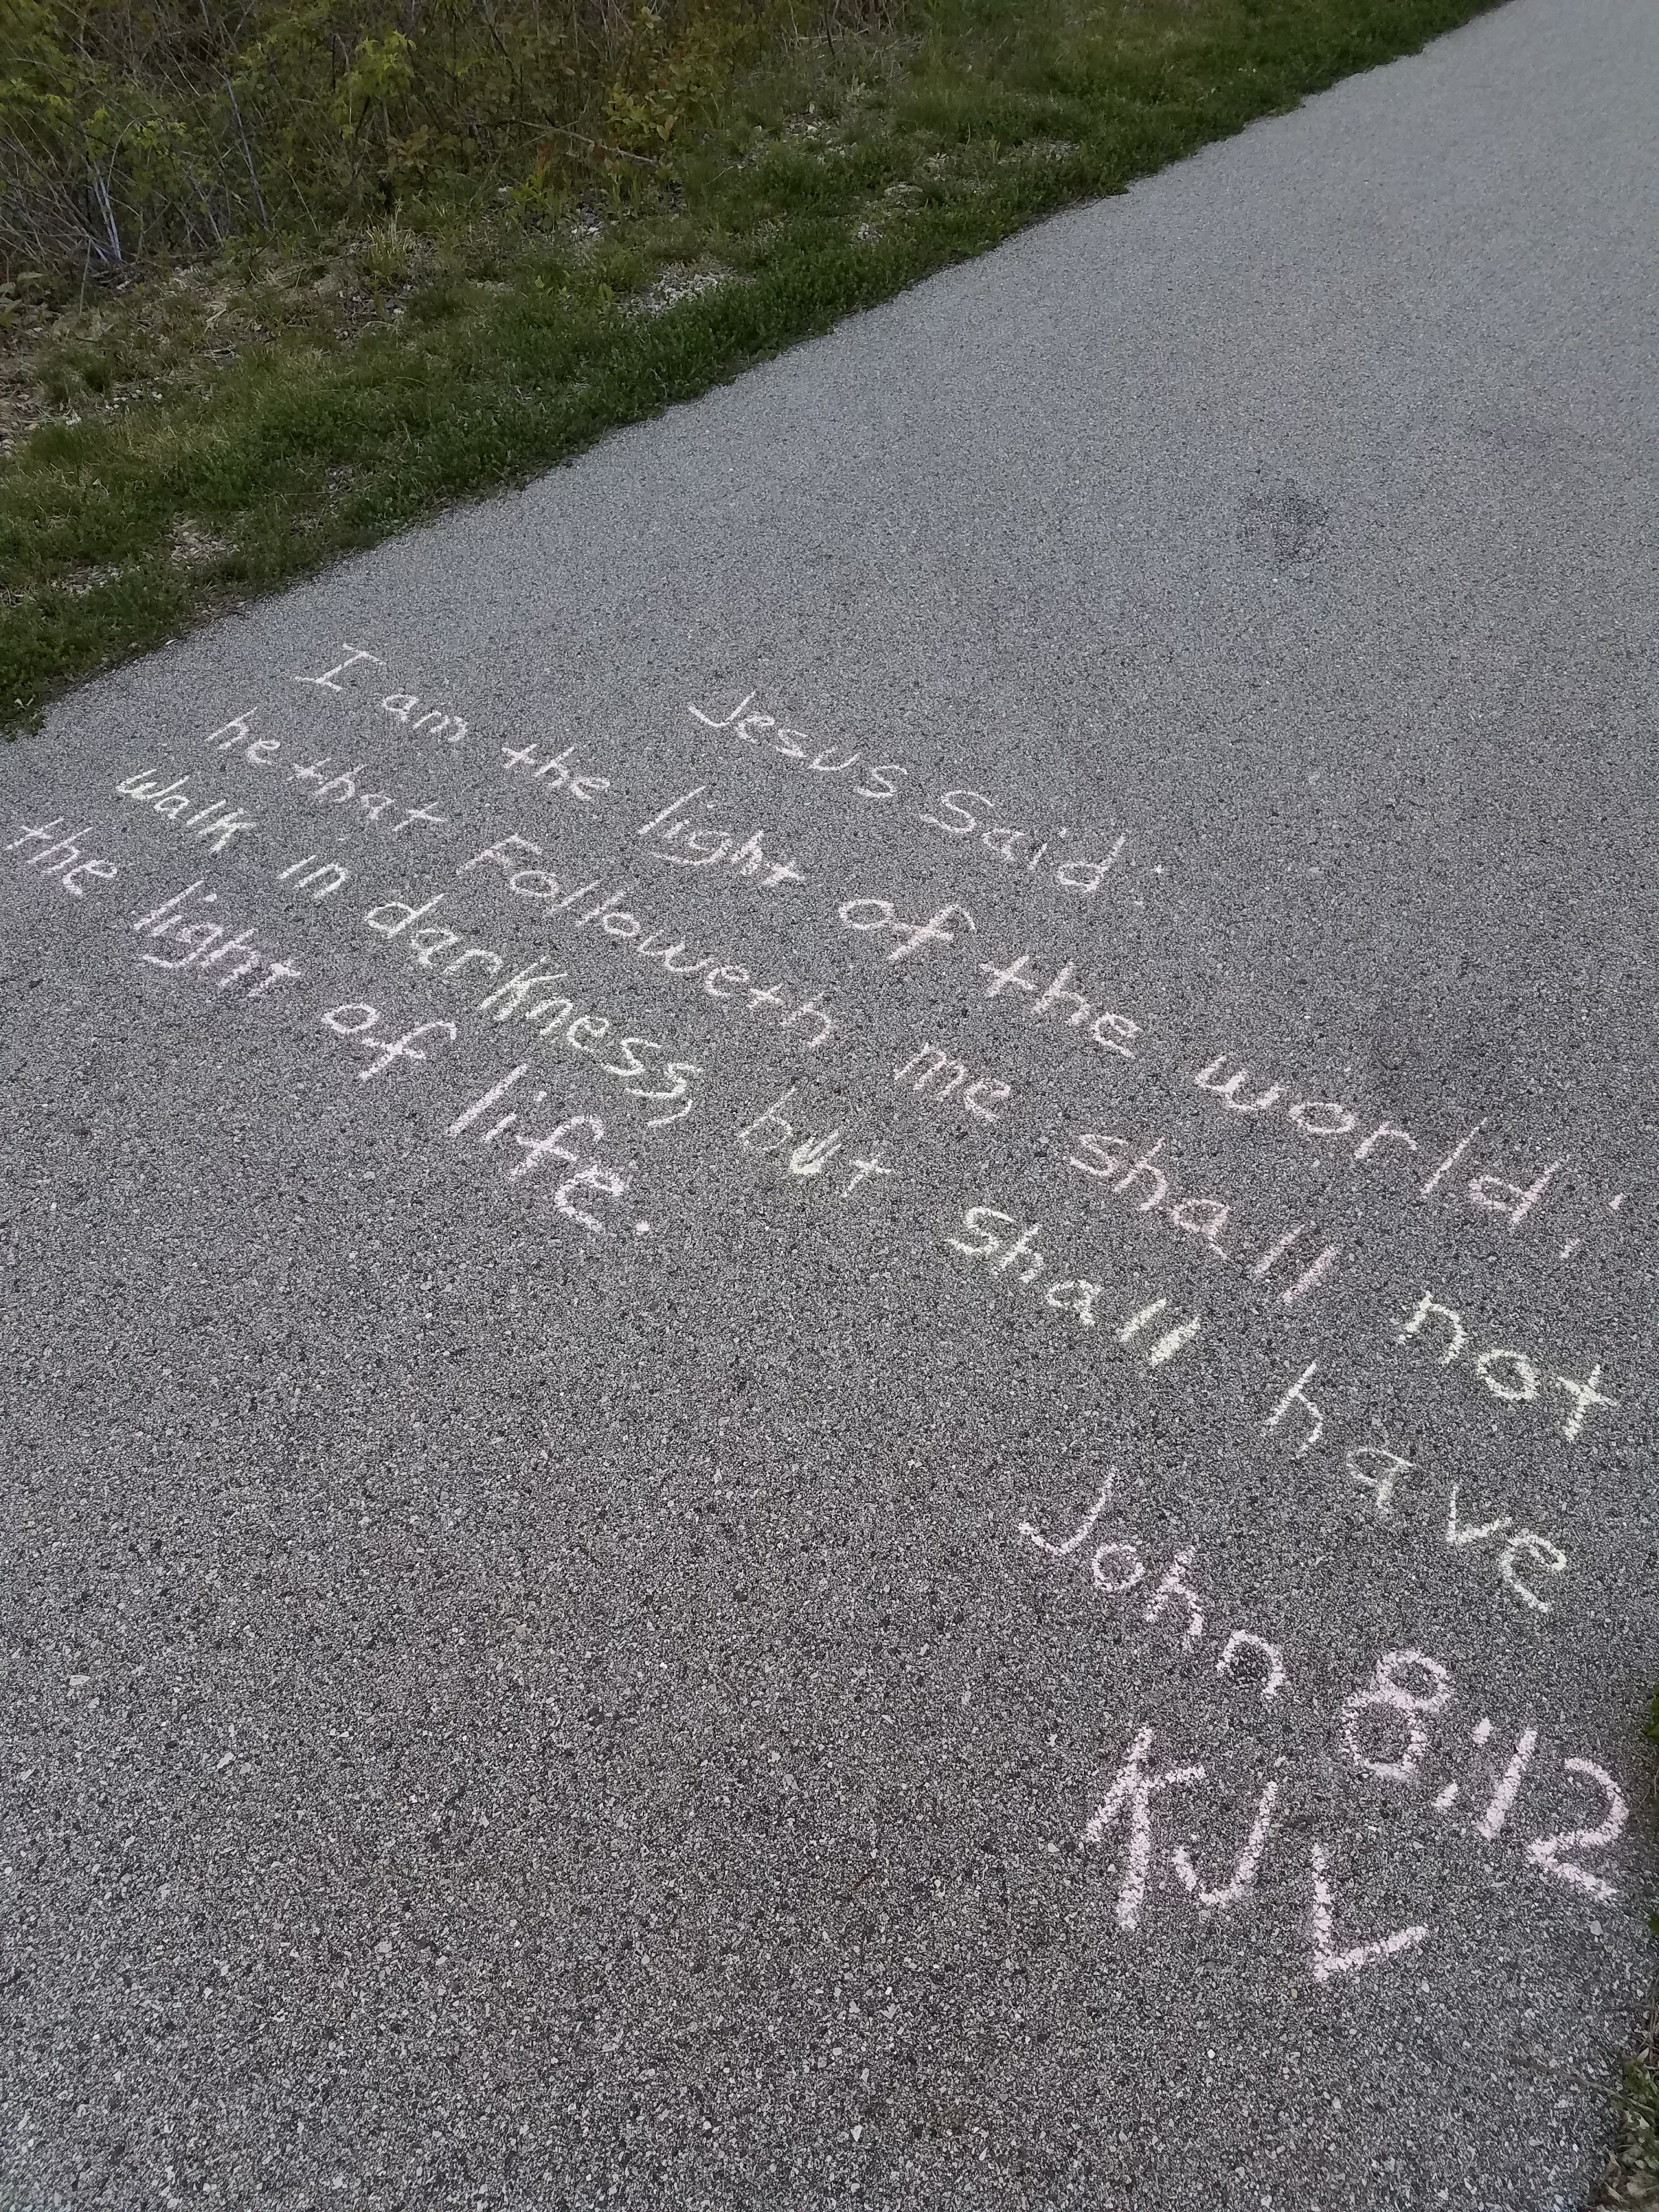 Jesus Said:
I am the light of the world;
he that Followeth me shall not
walk in darkness, but shall have
the light of life.
John 8:12
KJV